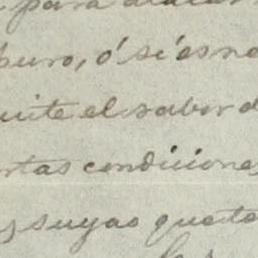 para
puro, ó si és ne
quite el sabor d
rtas condiciones
s suyas que to